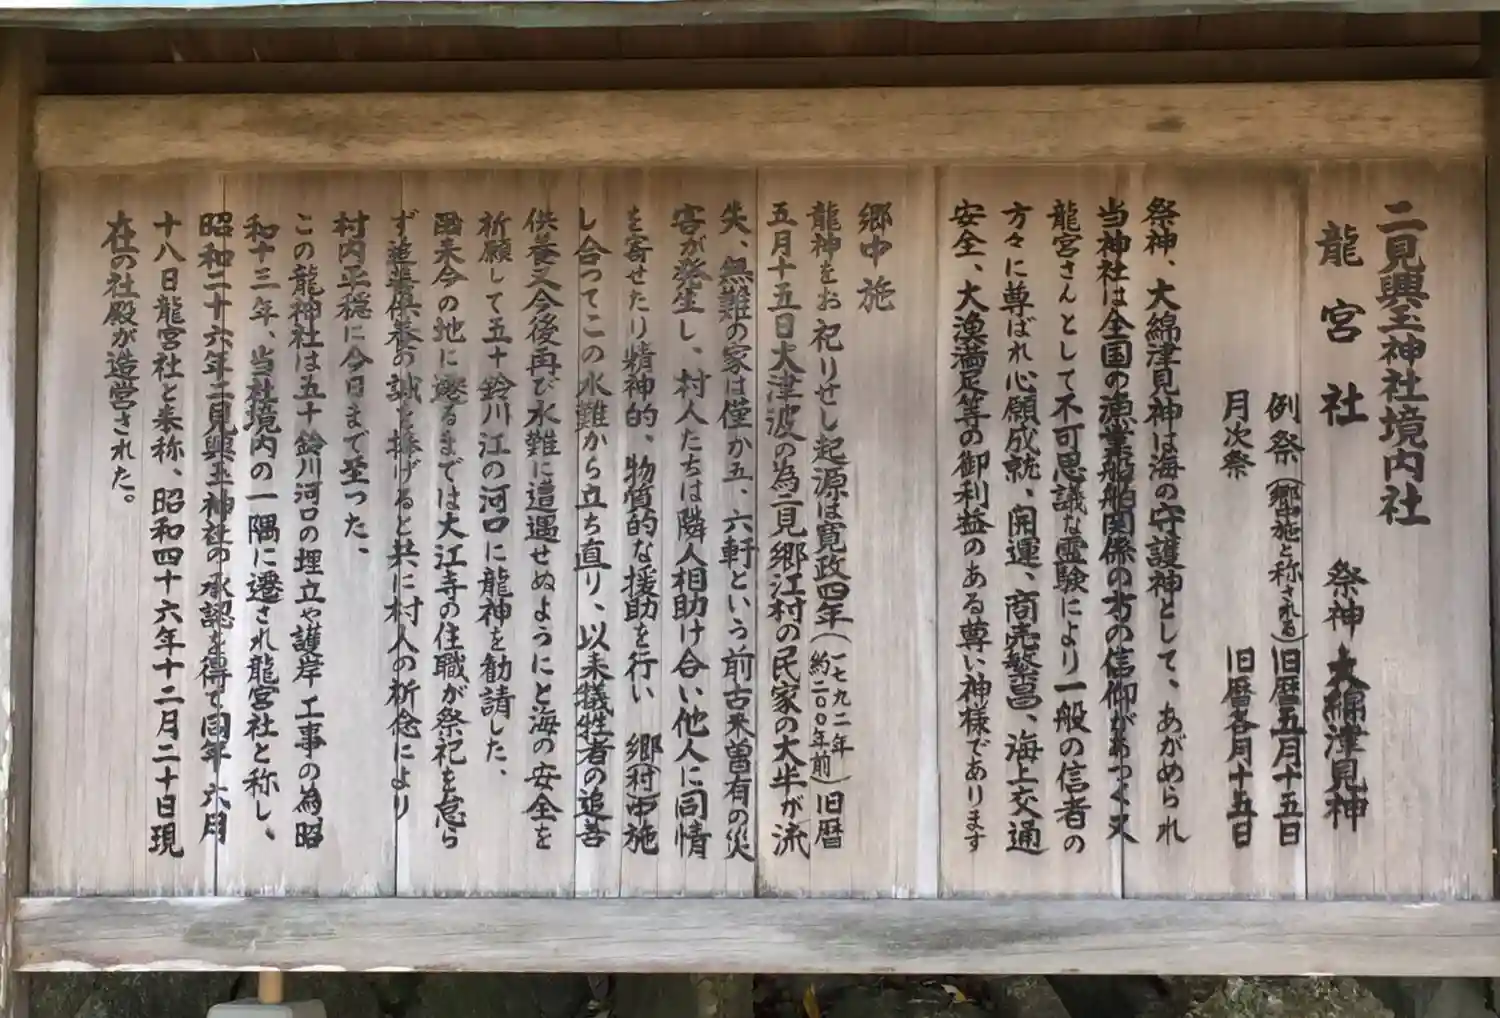 二見興玉神社境内社
龍宮社　祭神 大綿津見神
例祭（郷中施と称される）旧暦五月十五日
月次祭　旧暦各月十五日
祭神、大綿津見神は海の守護神として、あがめられ
当神社は全国の漁業船舶関係の方の信仰があつく又
龍宮さんとして不可思議な霊験により一般の信者の
方々に尊ばれ心願成就、開運、商売繁昌、海上交通
安全、大漁満足等の御利益のある尊い神様であります
郷中施
龍神をお祀りせし起源は寛政四年（一七九二年 約二〇〇年前）旧暦
五月十五日大津波の為二見郷江村の民家の大半が流
失、無難の家は僅か五、六軒という前古未曽有の災
害が発生し、村人たちは隣人相助け合い他人に同情
を寄せたり精神的、物質的な援助を行い　郷（村）中施
し合ってこの水難から立ち直り、以来犠牲者の追善
供養又今後再び水難に遭遇せぬようにと海の安全を
祈願して五十鈴川江の河口に龍神を勧請した、
爾来今の地に遷るまでは大江寺の住職が祭祀を怠ら
ず追善供養の誠を捧げると共に村人の祈念により
村内平穏に今日まで至った、
この龍神社は五十鈴川河口の埋立や護岸工事の為昭
和十三年、当社境内の一隅に遷され龍宮社と称し、
昭和二十六年二見興玉神社の承認を得て同年六月
十八日龍宮社と来称、昭和四十六年十二月二十日現
在の社殿が造営された。